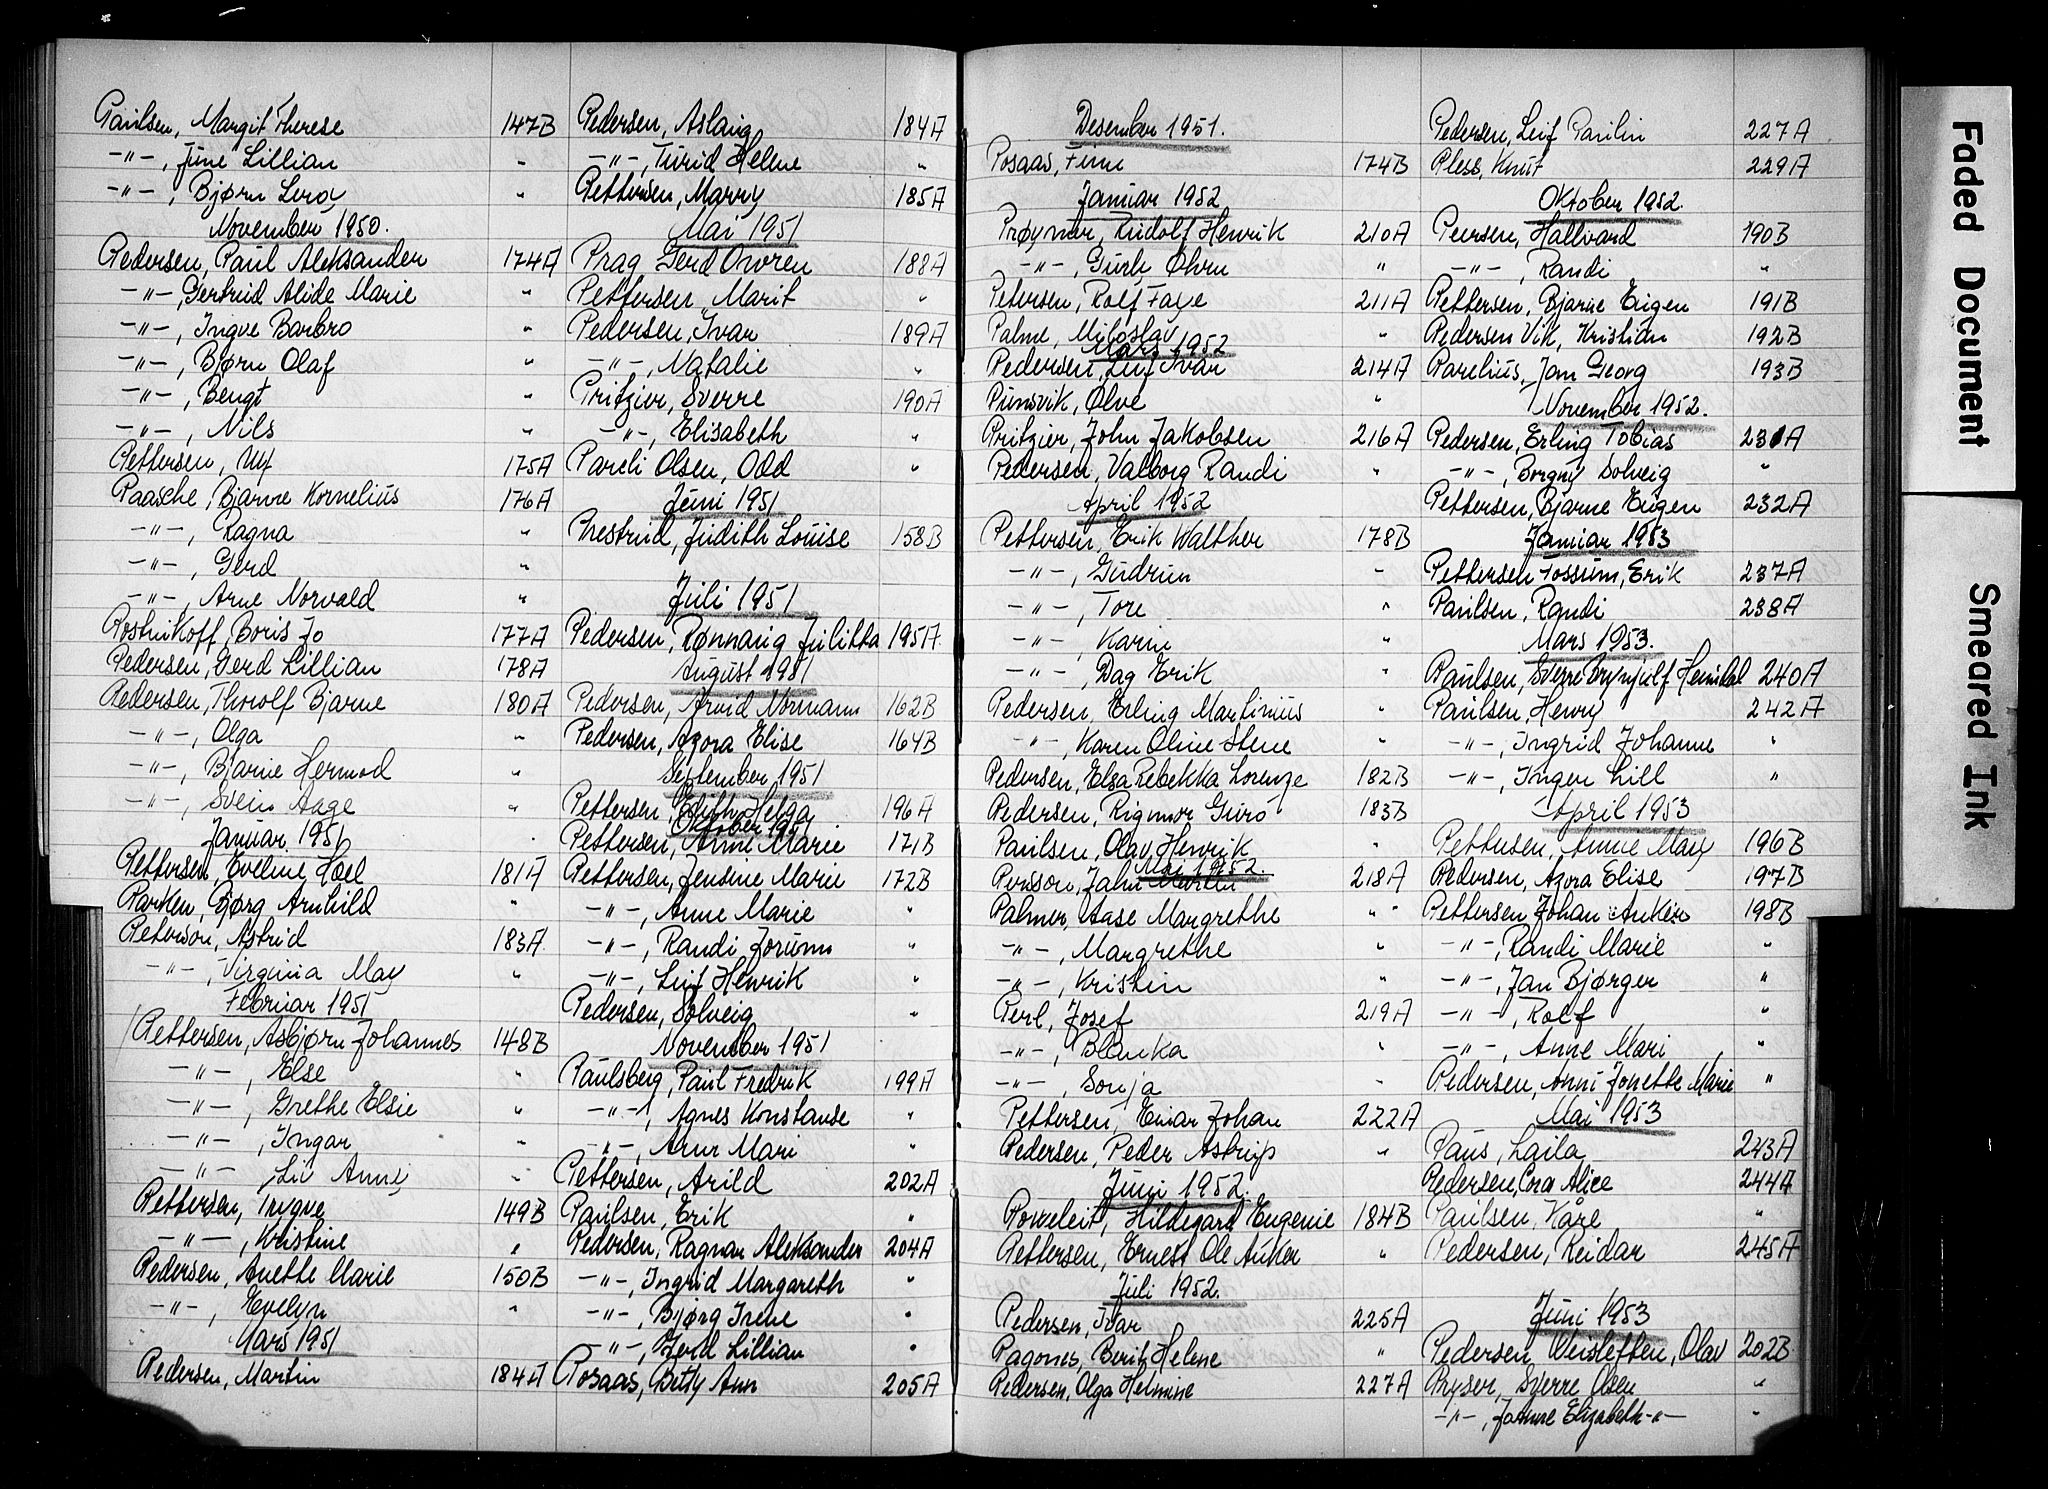 Paulsen, Margit Therese 147B
-"-, June Lillian "
-"-, Bjørn Leroy "
November 1950.
Pedersen, Paul Aleksander 174A
-"-, Gertrud Alide Marie "
-"-, Ingve Barbro "
-"-, Bjørn Olaf "
-"-, Bengt "
-"-, Nils "
Pettersen, Ulf 175A
Paasche, Bjarne Kornelius 176A
-"-, Ragna "
-"-, Gerd "
-"-, Arne Norvald "
Postnikoff, Boris Jo 177A
Pedersen, Gerd Lillian 178A
Pedersen, Thorolf Bjarne 180A
-"-, Olga "
-"-, Bjarne Hermod "
-"-, Svein Aage "
Januar 1951
Pettersen, Eveline Hoel 181A
Parken, Bjørg Arnhild "
Peterson, Astrid 183A
-"-, Virginia May "
Februar 1951
Pettersen, Asbjørn Johannes 148B
-"-, Else "
-"-, Grethe Elsie "
-"-, Ingar "
-"-, Liv Anne "
Pettersen, Trygve 149B
-"-, Kristine "
Pedersen, Anette Marie 150B
-"-, Evelyn "
Mars 1951
Pedersen, Martin 184A
Pedersen, Aslaug 184A
-"-, Turid Helene "
Pettersen, Marry 185A
Mai 1951
Prag Gerd Owren 188A
Pettersen, Marit "
Pedersen, Ivar 189A
-"-, Natalie "
Pritzier, Sverre 190A
-"-, Elisabeth "
Pareli Olsen, Odd "
Juni 1951
Prestrud, Judith Louise 158B
Juli 1951
Pedersen, Rønnaug Julitta 195A
August 1951
Pedersen, Arvid Normann 162B
Pedersen, Agora Elise 164B
September 1951
Pettersen, Edith Helga 196A
Oktober 1951
Pettersen, Anne Marie 171B
Pettersen, Jensine Marie 172B
-"-, Anne Marie "
-"-, Randi Jorunn "
-"-, Leif Henrik "
Pedersen, Solveig "
November 1951
Paulsberg, Paul Fredrik 199A
-"-, Agnes Konstanse "
-"-, Anne Mari "
Pettersen, Arild 202A
Paulsen, Erik "
Pedersen, Ragnar Aleksander 204A
-"-, Ingrid Margareth "
-"-, Bjørg Irene "
-"-, Gerd Lillian "
Posaas, Betty Ann 205A
Desember 1951.
Posaas, Finn 174B
Januar 1952
Prøymar, Rudolf Henrik 210A
-"-, Guth Øhrn "
Petersen, Rolf Faye 211A
Palme, Miloslav "
Mars 1952
Pedersen, Leif Ivar 214A
Punsvik, Ølve "
Pritzier, John Jakobsen 216A
Pedersen, Valborg Randi "
April 1952
Pettersen, Erik Walther 178B
-"-, Gudrun "
-"-, Tore "
-"-, Karin "
-"-, Dag Erik "
Pedersen, Erling Martinius "
-"-, Karen Oline Stene "
Pedersen, Elsa Rebekka Lorenze 182B
Pedersen, Rigmor Guro 183B
Paulsen, Olav Henrik "
Mai 1952.
Persson, Jahn Martin 218A
Palmer, Aase Margrethe "
-"-, Margrethe "
-"-, Kristin "
Perl, Josef 219A
-"-, Blanka "
-"-, Sonja "
Pettersen, Einar Johan 222A
Pedersen, Peder Astrup "
Juni 1952.
Poweleit, Hildegard Eugenie 184B
Pettersen, Ernest Ole Anker "
Juli 1952.
Pedersen, Ivar 225A
Pagones, Berit Helene "
Pedersen, Olga Helmine 227A
Pedersen, Leif Paulin 227A
Pless, Knut 229A
Oktober 1952.
Peersen, Hallvard 190B
-"-, Randi "
Pettersen, Bjarne Eugen 191B
Pedersen Vik, Kristian 192B
Parelius, Jan Georg 193B
November 1952.
Pedersen, Erling Tobias 231A
-"-, Borgny Solveig "
Pettersen, Bjarne Eugen 232A
Januar 1953
Pettersen Fossum, Erik 237A
Paulsen, Randi 238A
Mars 1953.
Paulsen, Sverre Brynjulf Heimdal 240A
Paulsen, Henry 242A
-"-, Ingrid Johanne "
-"-, Inger Lill "
April 1953
Pettersen, Anne May 196B
Pedersen, Agora Elise 197B
Pettersen Johan Anker 198B
-"-, Randi Marie "
-"-, Jan Bjørger "
-"-, Rolf "
-"-, Anne Mari "
Pedersen, Anni Jonette Marie "
Mai 1953
Paus, Laila 243A
Pedersen, Cora Alice 244A
Paulsen, Kåre "
Pedersen, Reidar 245A
Juni 1953
Pedersen Weisletten, Olav 202B
Pryser, Sverre Olsen "
-"-, Janne Elizabeth -"- "
Faded Document
Smeared Ink